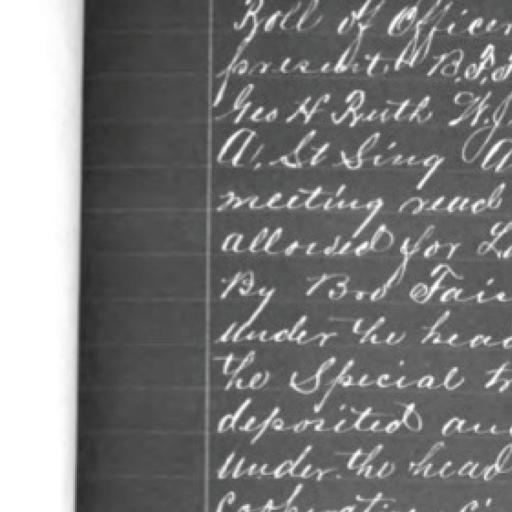 Roll of Officer
present B.F.
Geo H Ruth W.J.
A. St Sing A
meeting read
allowed for L
By Bro Fair
under the head
the Special tr
deposited an
under the head